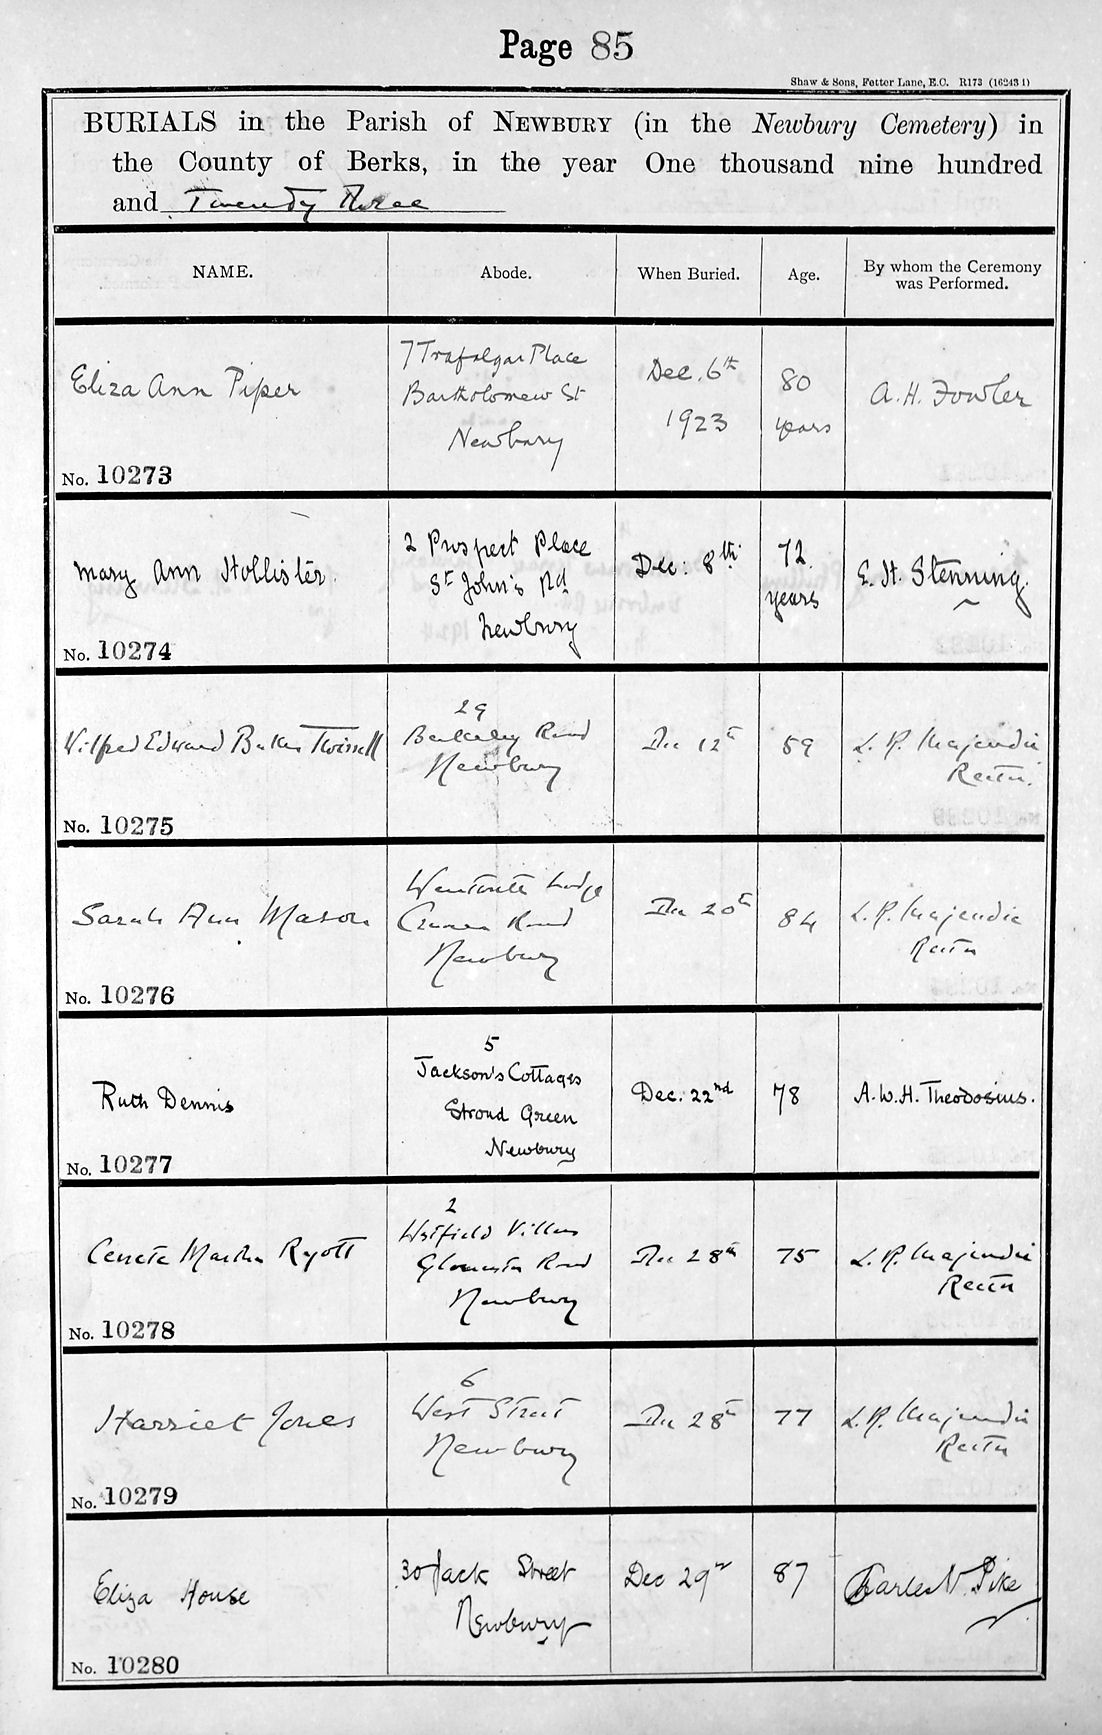 Page 85
Shaw & Sons, Fetter Lane, E.C. R173 (16243 1)
BURIALS in the Parish of NEWBURY (in the Newbury Cemetery) in
the County of Berks, in the year One thousand nine hundred
and Twenty Three
NAME.
Abode.
When Buried.
Age.
By whom the Ceremony
was Performed.
Eliza Ann Piper
No. 10273
7 Trafalgar Place
Bartholomew St
Newbury
Dec. 6th
1923
80
years
A. H. Fowler
Mary Ann Hollister.
No. 10274
2 Prospect Place
St John's Rd
Newbury
Dec: 8th
72
years
E. H. Stenning.
Wilfred Edward
No. 10275
29
Berkeley Road
Newbury
Dec 12th
59
L. R. Majendie
Rector.
Sarah Ann Mason
No. 10276
Lodge
Craven Road
Newbury
Dec 20th
84
L. R. Majendie
Rector
Ruth Dennis
No. 10277
5
Jackson's Cottages
Stroud Green
Newbury
Dec. 22nd
78
A. W. H. Theodosius.
Martha Ryott
No. 10278
2
Westfield Villas
Gloucester Road
Newbury
Dec 28th
75
L. R. Majendie
Rector
Harriet Jones
No. 10279
6
West Street
Newbury
Dec 28th
77
L. R. Majendie
Rector
Eliza House
No. 10280
30 Jack Street
Newbury
Dec 29th
87
Charles N. Pike